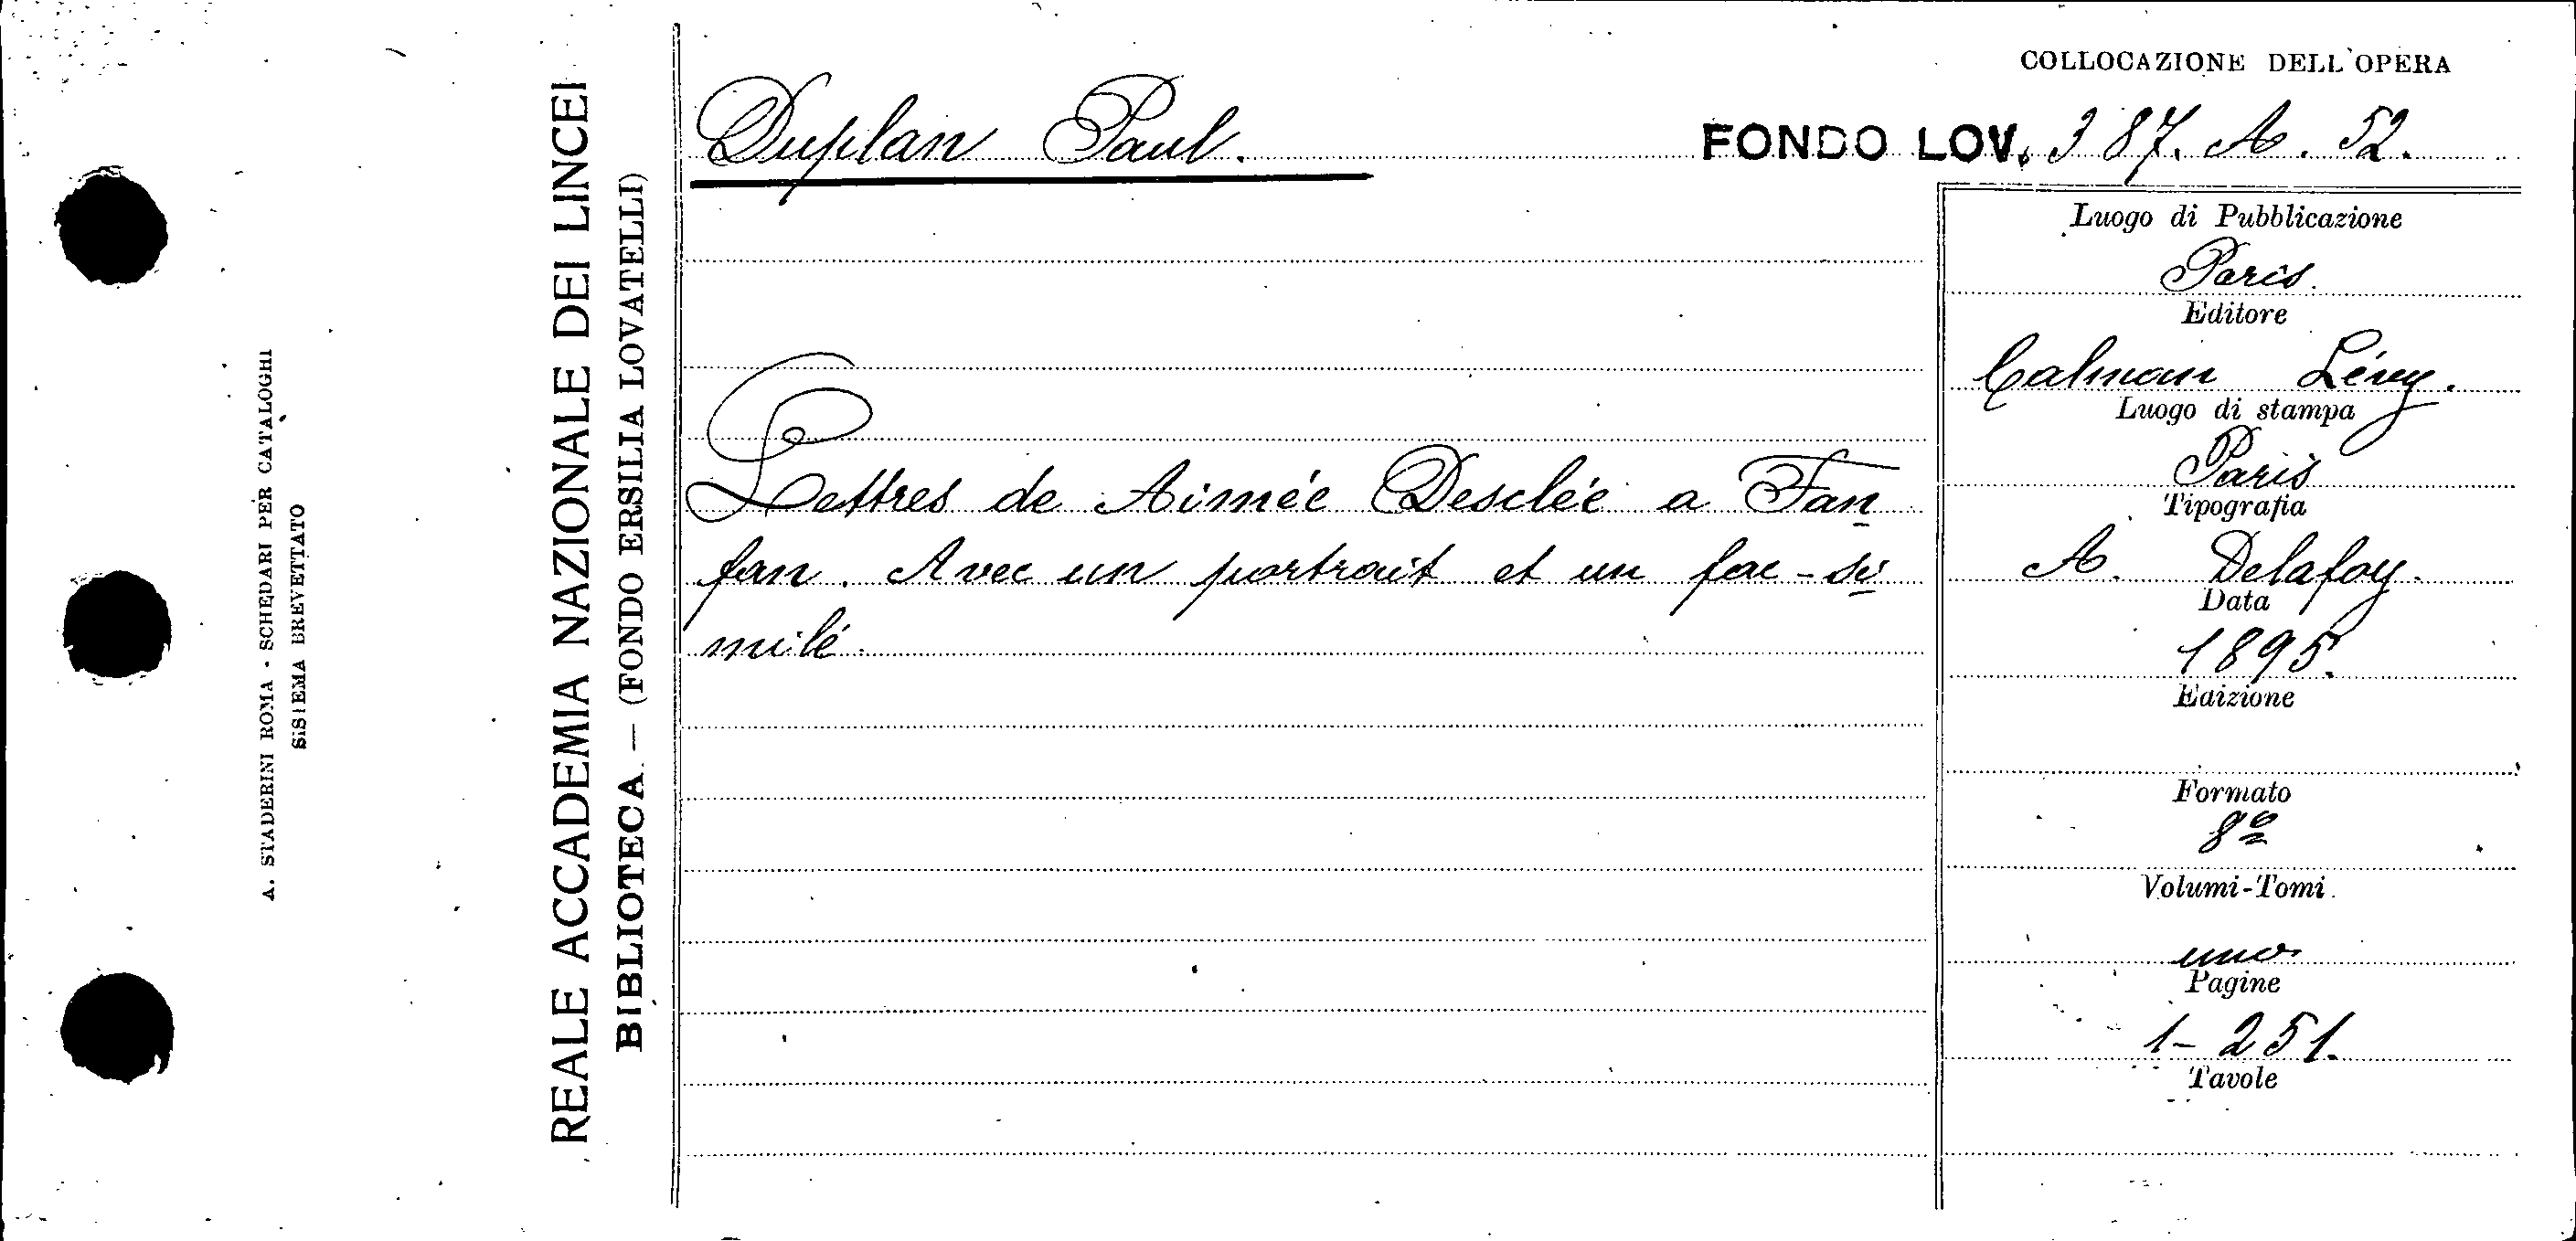 A. STADERINI ROMA - SCHEDARI PER CATALOGHI
SISTEMA BREVETTATO
REALE ACCADEMIA NAZIONALE DEI LINCEI
BIBLIOTECA — (FONDO ERSILIA LOVATELLI)
COLLOCAZIONE DELL'OPERA
Duplan Paul.
FONDO LOV. 387. A. 52.
Lettres de Aimée Desclée a Fan
fan. Avec un portrait et un fac-si
milé.
Luogo di Pubblicazione
Paris.
Editore
Calman Lévy.
Luogo di stampa
Paris
Tipografia
A. Delafoy.
Data
1895.
Edizione
Formato
8º
Volumi-Tomi
uno
Pagine
1-251.
Tavole